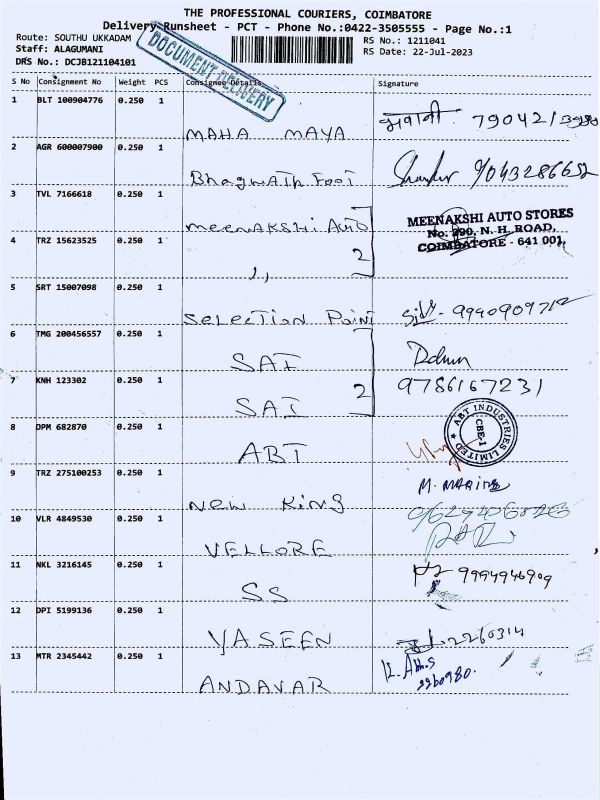 THE PROFESSIONAL COURIERS, COIMBATORE
Delivery Runsheet - PCT - Phone No.:0422-3505555 - Page No.:1
Route: SOUTHU UKKADAM
RS No.: 1211041
Staff: ALAGUMANI
RS Date: 22-Jul-2023
DRS No.: DCJB121104101
DOCUMENT DELIVERY
S No Consignment No Weight PCS Consignee Details Signature
1 BLT 100904776 0.250 1
MAHA MAYA
2 AGR 600007900 0.250 1
Bhagwath Foot
3 TVL 7166618 0.250 1
meenakshi Auto
MEENAKSHI AUTO STORES
No. 290, N. H. ROAD,
COIMBATORE - 641 001.
4 TRZ 15623525 0.250 1
2
,,
5 SRT 15007098 0.250 1
Selection Point
9940909712
6 TMG 200456557 0.250 1
SAI
7 KNH 123302 0.250 1
2
9786167231
SAI
8 DPM 682870 0.250 1
ABT
ABT INDUSTRIES LIMITED
CBE-1
9 TRZ 275100253 0.250 1
New King
10 VLR 4849530 0.250 1
VELLORE
11 NKL 3216145 0.250 1
9994946909
SS
12 DPI 5199136 0.250 1
YASEEN
2260314
13 MTR 2345442 0.250 1
ANDAVAR
2260980.